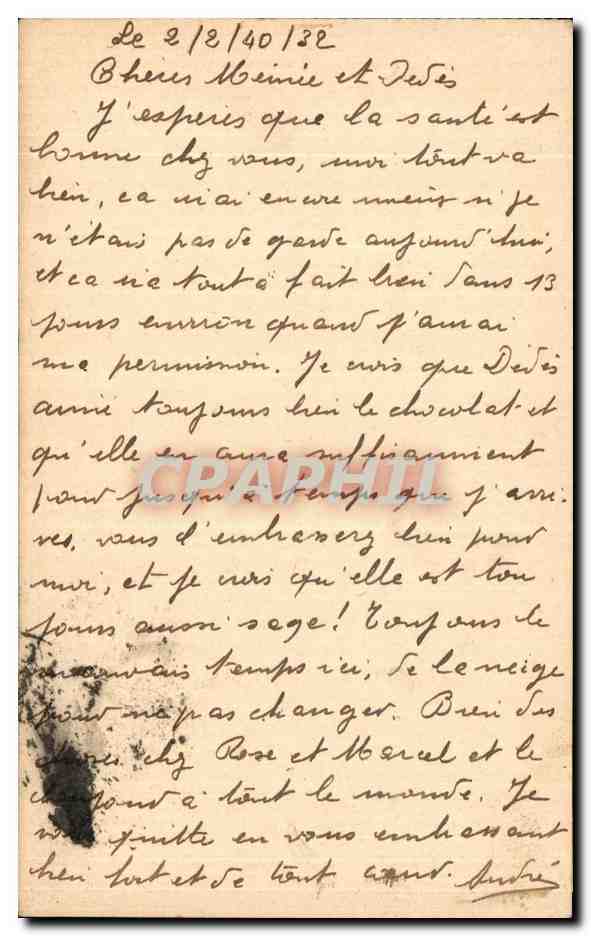 Le 2/2/40/32
Chères Mémée et Dédés
J'esperes que la santé est
bonne chez vous, moi tout va
bien, ca irai encore mieux si je
n'étais pas de garde aujourd'hui,
et ca ira tout à fait bien dans 13
jours environ quand j'aurai
ma permission. Je crois que Dédés
aime toujours bien le chocolat et
qu'elle en aura suffisamment
pour jusqu'à temps que j'arri-
ves, vous l'embrasserez bien pour
moi, et je crois qu'elle est tou
jours aussi sage! Toujours le
mauvais temps ici, de la neige
pour ne pas changer. Bien des
choses chez Rose et Marcel et le
bonjour à tout le monde. Je
vous quitte en vous embrassant
bien fort et de tout cœur. André
CPAPHIL